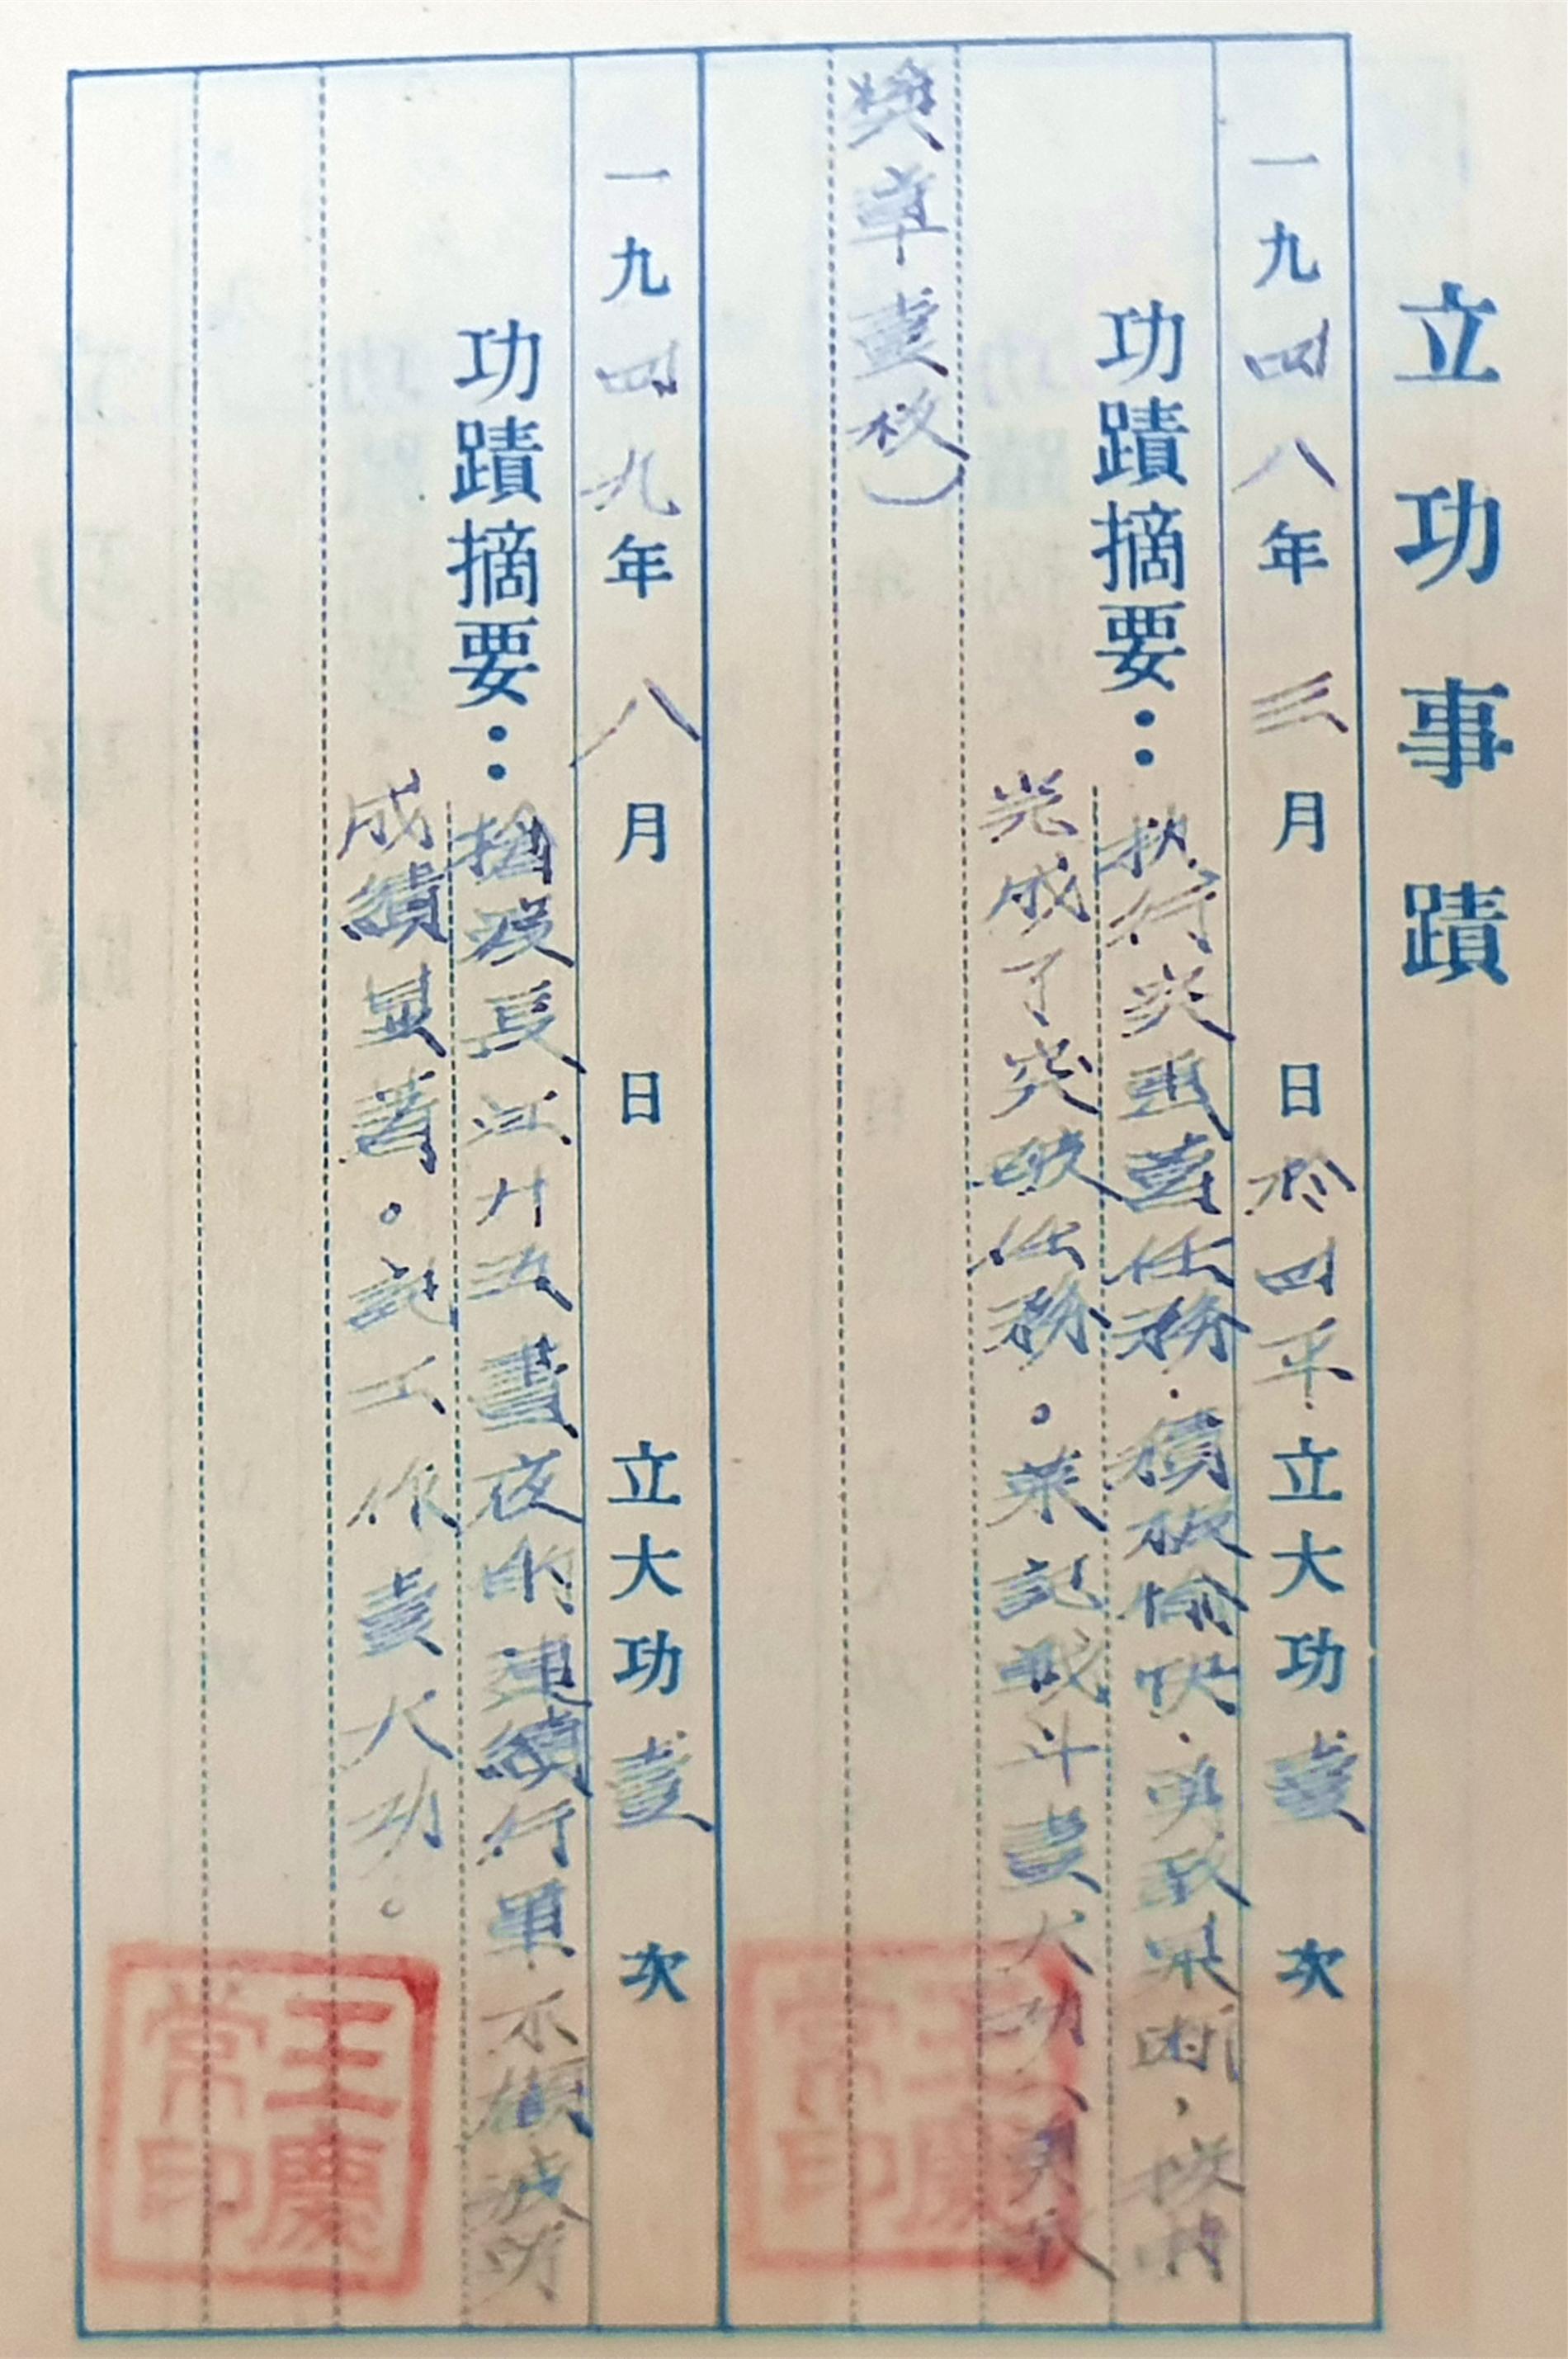 立功事蹟
一九四八年三月 日於四平立大功壹次
功蹟摘要：执行突击任务．積极愉快．勇敢果断，按時
完成了突破任务。荣記战斗壹大功（勇敢
奖章壹枚）
一九四九年八月 日 立大功壹次
功蹟摘要：搶渡長江廿五晝夜的連續行軍不顧疲劳
成績显著。記工作壹大功。
王慶常印
王慶常印